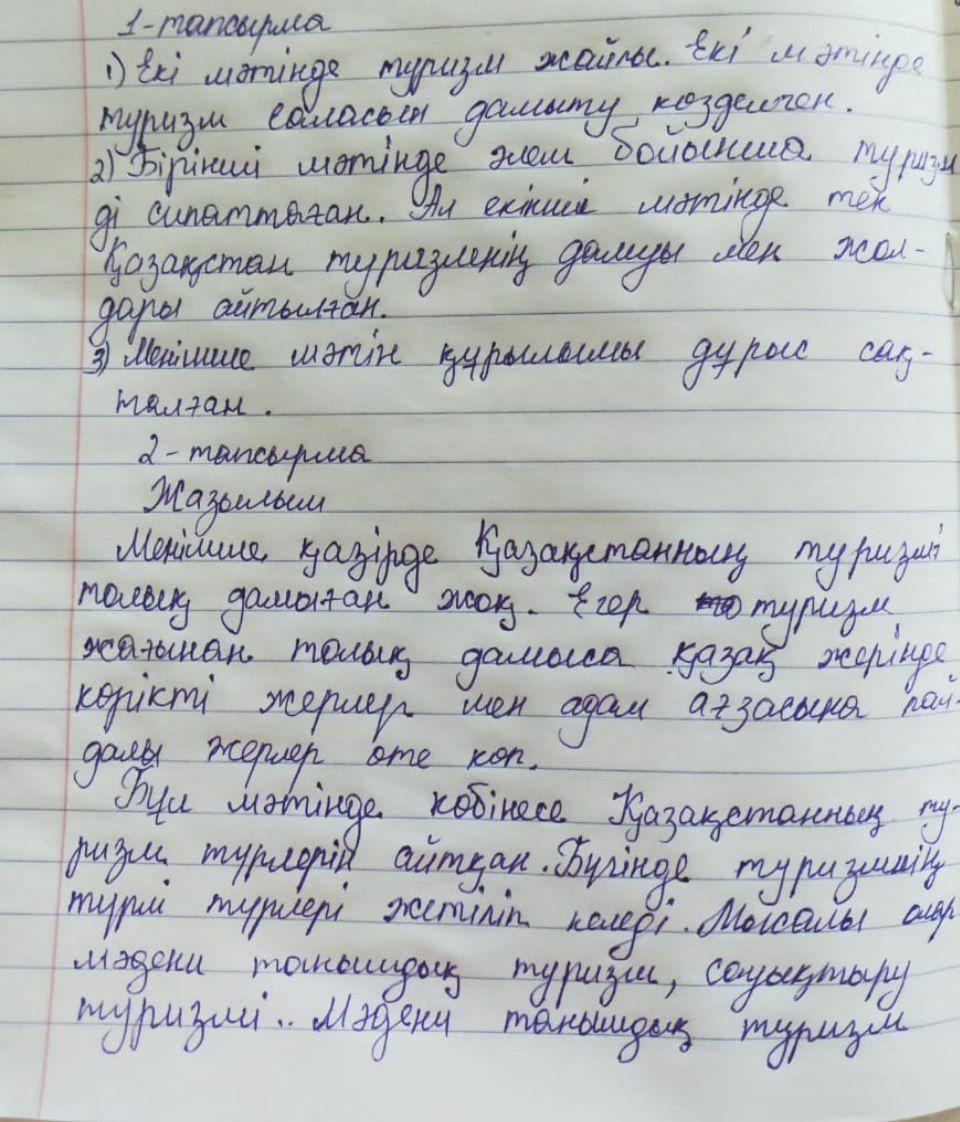 1-тапсырма
1) Екі мәтінде туризм жайлы. Екі мәтінде
туризм саласын дамыту көзделген.
2) Бірінші мәтінде әлем бойынша туризм
ді сипаттаған. Ал екінші мәтінде тек
Қазақстан туризмнің дамуы мен жол-
дары айтылған.
3) Менімше мәтін құрылымы дұрыс сақ-
талған.
2-тапсырма
Жазылым
Менімше қазірде Қазақстанның туризмі
толық дамыған жоқ. Егер туризм
жағынан толық дамыса қазақ жерінде
көрікті жерлер мен адам ағзасына пай-
далы жерлер өте көп.
Бұл мәтінде көбінесе Қазақстанның ту-
ризм түрлерін айтқан. Бүгінде туризмнің
түрлі түрлері жетіліп келеді. Мысалы олар
мәдени танымдық туризм, сауықтыру
туризмі.. Мәдени танымдық туризм